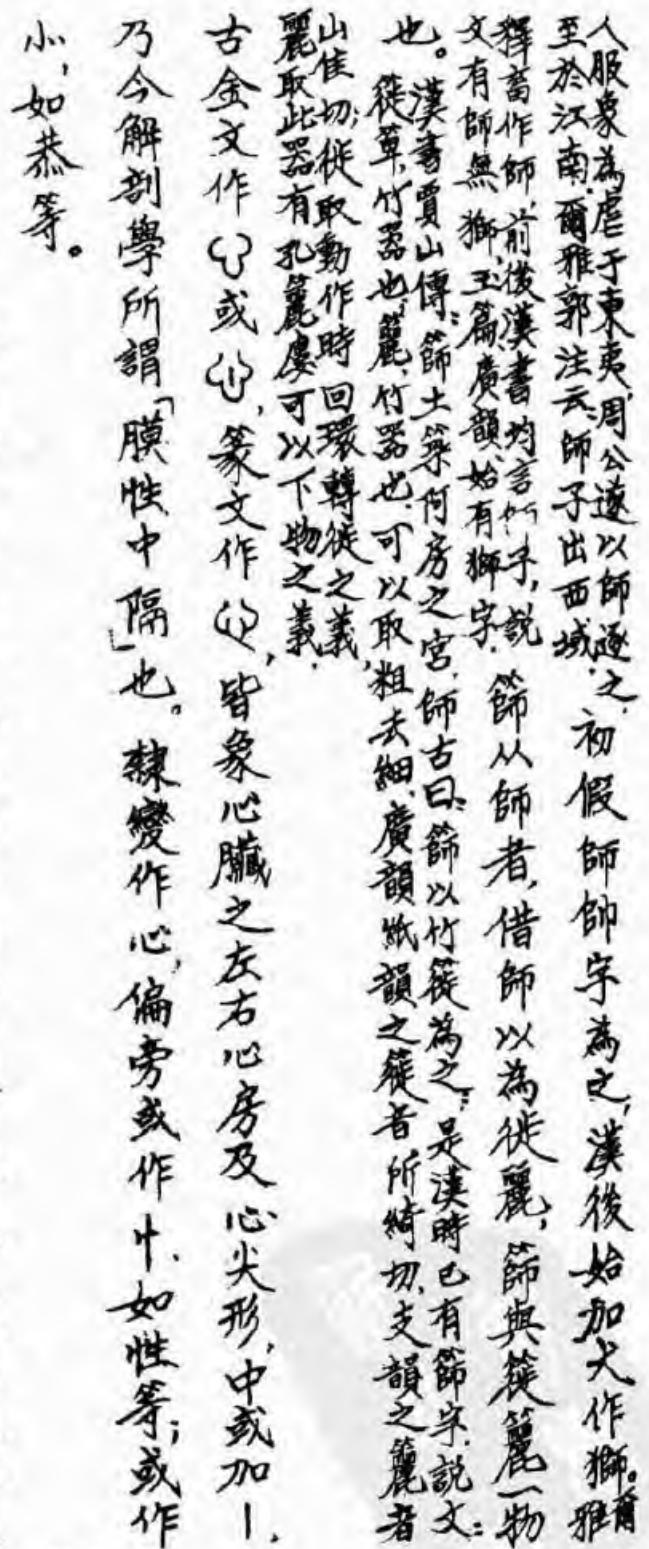 人服象為虐于東夷,周公遂以師逐之,
至於江南.爾雅郭注云:師子出西域.
初假師帥字為之,漢後始加犬作獅。爾
雅
釋畜作師,前後漢書均言師子,說
文有師無獅,玉篇廣韻始有獅字.
篩从師者,借師以為徙麗,篩與簁籭一物
也。漢書賈山傳:篩土築阿房之宮.師古曰:篩以竹簁為之;是漢時已有篩字.說文:
簁箄,竹器也;籭,竹器也.可以取粗去細.廣韻紙韻之簁音所綺切,支韻之籭者
山佳切;徙取動作時回環轉徙之義,
麗取此器有孔麗廔可以下物之義.
古金文作或,篆文作,皆象心臟之左右心房及心尖形,中或加丨,
乃今解剖學所謂「膜性中隔」也。隸變作心,偏旁或作忄,如性等;或作
⺗,如恭等。